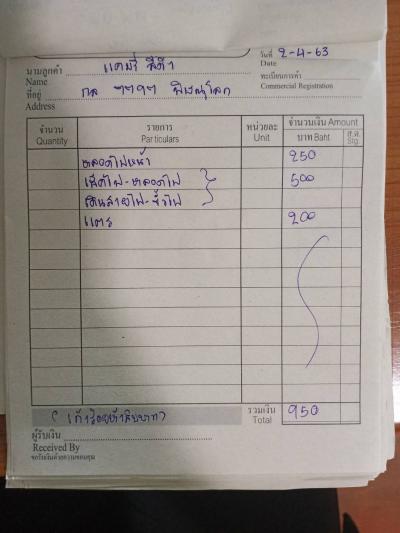 วันที่ 2-4-63
Date
นามลูกค้า แคมรี่ สีดำ
Name
ทะเบียนการค้า
Commercial Registration
ที่อยู่ กล ๖๒๑๖ พิษณุโลก
Address
จำนวน รายการ หน่วยละ จำนวนเงิน Amount
Quantity Particulars Unit บาท Baht ส.ต. Stg.
หลอดไฟหน้า 250
เช็คไฟ-หลอดไฟ 500
เดินสายไฟ-ขั้วไฟ
แตร 200
(เก้าร้อยห้าสิบบาท) รวมเงิน 950
Total
ผู้รับเงิน
Received By
ขอรับเงินด้วยความขอบคุณ